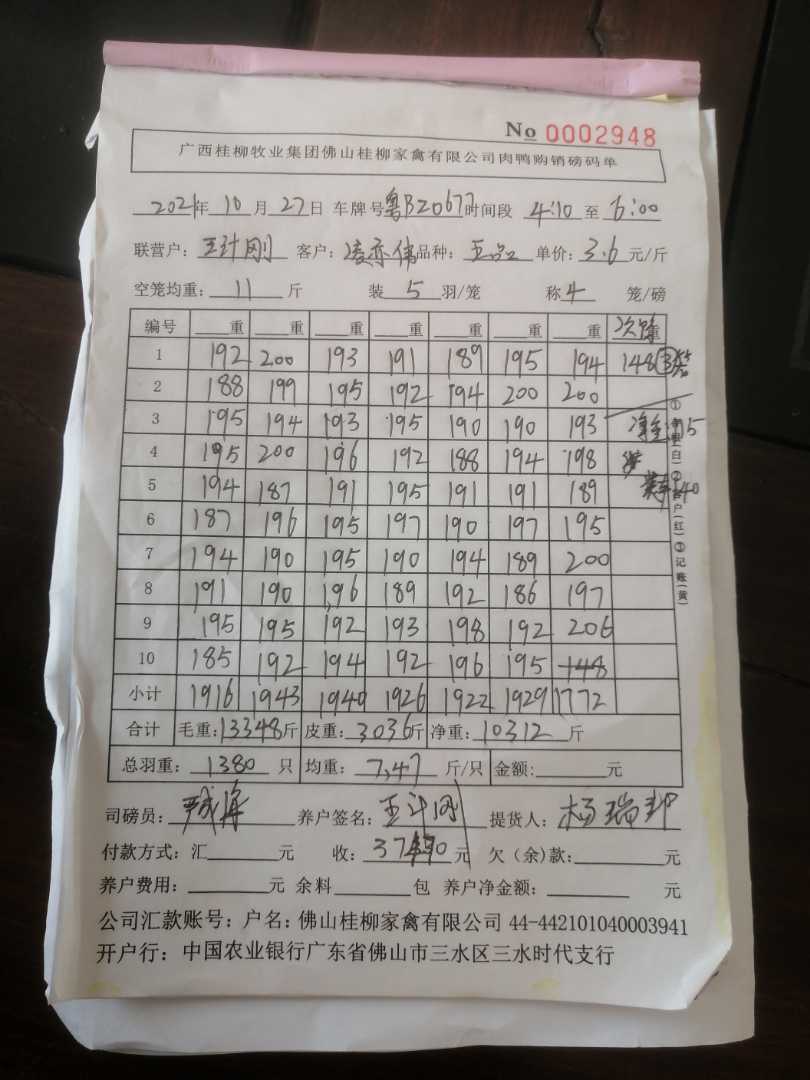 No 0002948
广西桂柳牧业集团佛山桂柳家禽有限公司肉鸭购销磅码单
2021年 10 月 27 日 车牌号 粤BZ0677 时间段 4:10 至 6:00
联营户: 王计刚 客户: 凌亦伟 品种: 王品 单价: 3.6 元/斤
空笼均重: 11 斤 装 5 羽/笼 称 4 笼/磅
编号 重 重 重 重 重 重 重 次 重
1 192 200 193 191 189 195 194 148 ③
2 188 199 195 192 194 200 200
3 195 194 193 195 190 190 193
4 195 200 196 192 188 194 198
5 194 187 191 195 191 191 189
6 187 196 195 197 190 197 195
7 194 190 195 190 194 189 200
8 191 190 196 189 192 186 197
9 195 195 192 193 198 192 206
10 185 192 194 192 196 195 148
小计 1916 1943 1940 1926 1922 1929 1772
合计 毛重: 13348 斤 皮重: 3036 斤 净重: 10312 斤
总羽重: 1380 只 均重: 7,47 斤/只 金额: 元
司磅员: 养户签名: 王计刚 提货人: 杨瑞邦
付款方式: 汇 元 收: 元 欠(余)款: 元
养户费用: 元 余料 包 养户净金额: 元
公司汇款账号: 户名: 佛山桂柳家禽有限公司 44-442101040003941
开户行: 中国农业银行广东省佛山市三水区三水时代支行
白)② 客户(红)③记账(黄)